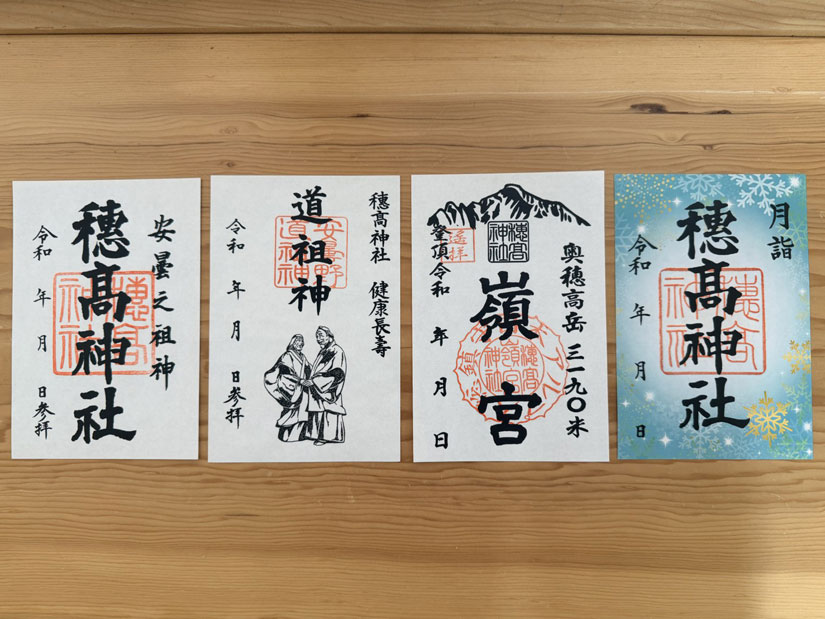 安曇之祖神
穗髙神社
令和　年　月　日参拝
穗高神社　健康長壽
道祖神
安曇野
道祖神
令和　年　月　日参拝
奥穗高岳　三一九〇米
穗高
神社
嶺宮
遥拝
登頂令和　年　月　日
月詣
穗髙神社
令和　年　月　日